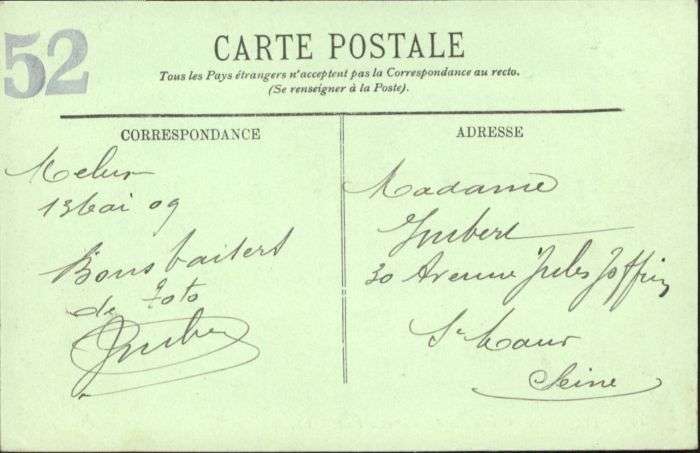 52
CARTE POSTALE
Tous les Pays étrangers n'acceptent pas la Correspondance au recto.
(Se renseigner à la Poste).
CORRESPONDANCE
Melun
13 Mai 09
Bons baisers
de Toto
Imbert
ADRESSE
Madame
Imbert
30 Avenue Jules Joffrin
St Maur
Seine